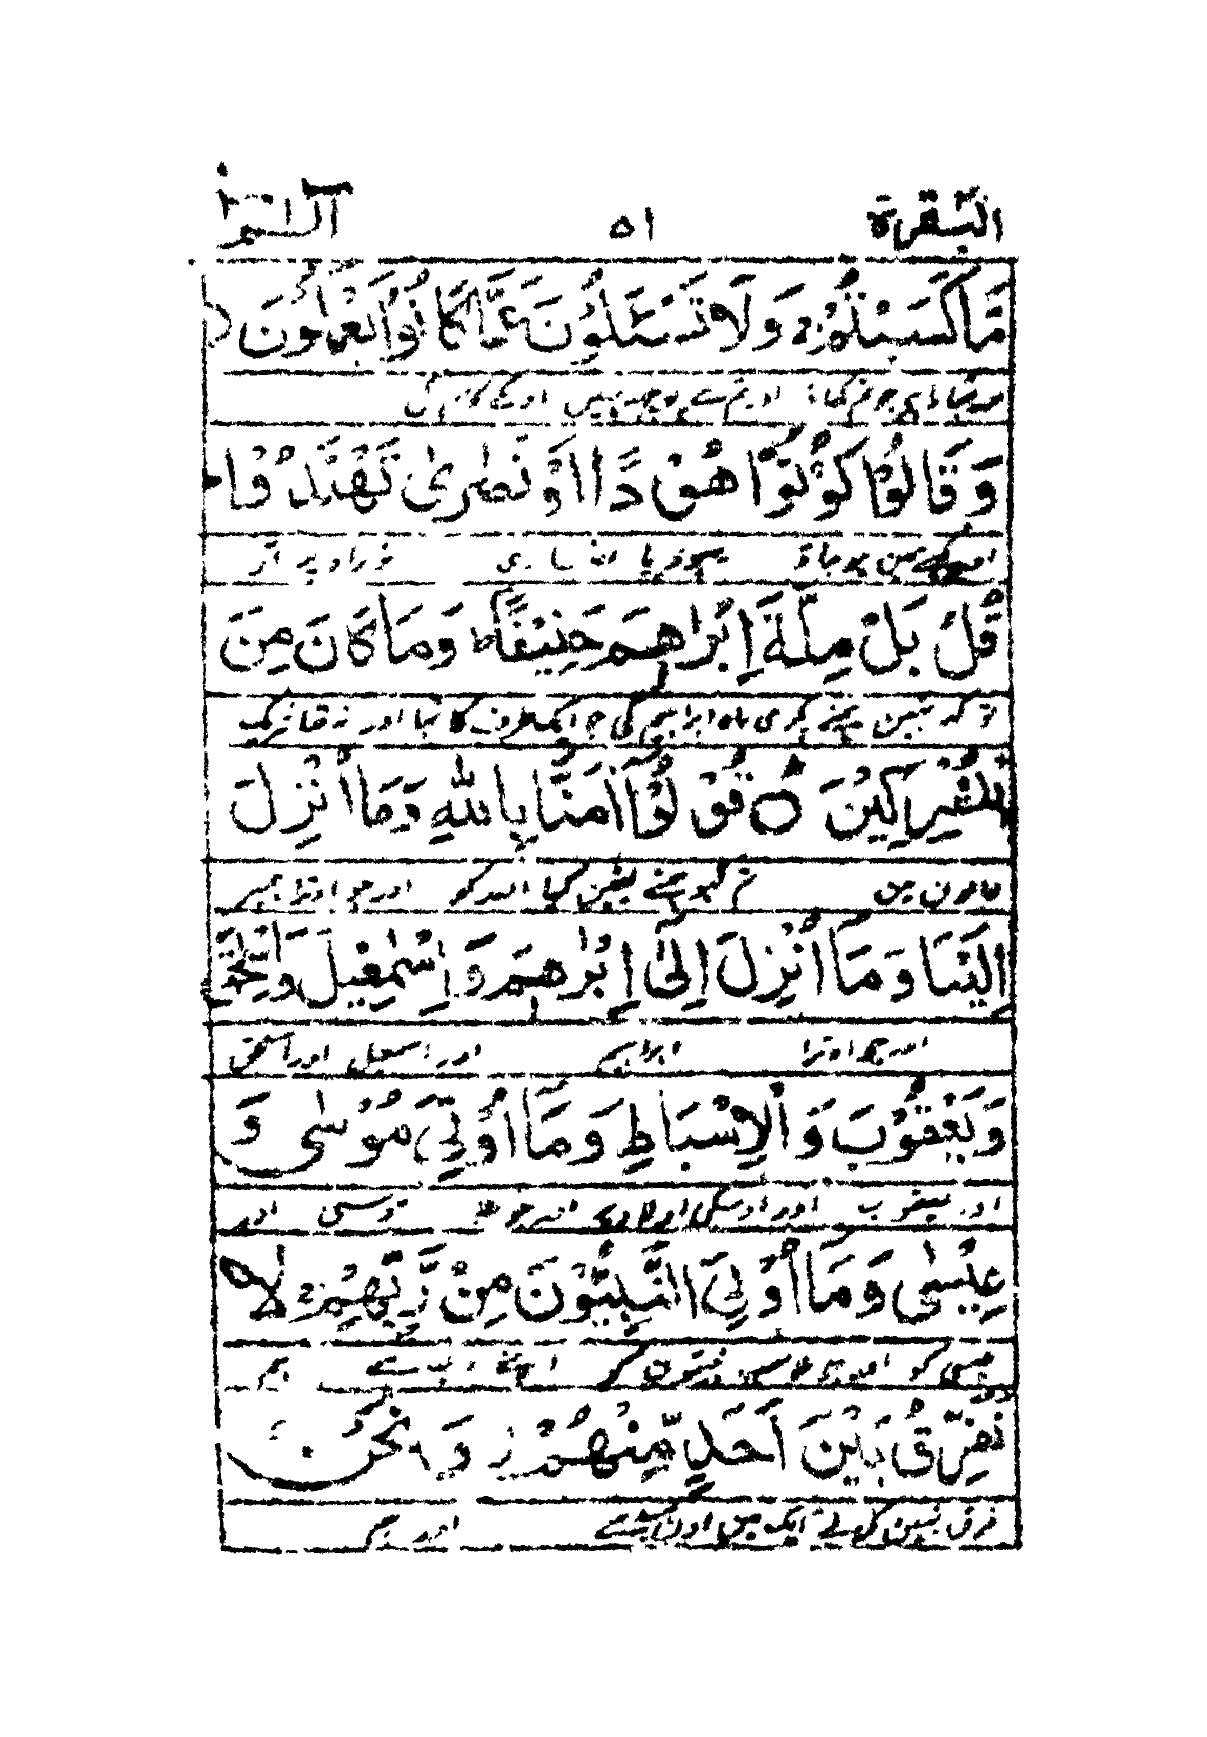 البقرة ۵۱ الٓمّ
مَّا كَسَبْتُمْ وَلَا تُسْـَٔلُوْنَ عَمَّا كَانُوْا يَعْمَلُوْنَ
وَ قَالُوْا كُوْنُوْا هُوْدًا اَوْ نَصٰرٰى تَهْتَدُوْا
اور کہتے ہین ہو جاؤ یہود یا نصاری تو راہ پر آؤ
قُلْ بَلْ مِلَّةَ اِبْرٰهٖمَ حَنِيْفًا وَمَا كَانَ مِنَ
تو کہہ نہین ہمنے پکڑی راہ ابراہیم کی جو ایکطرف کا تہا اور نہ تھا شریک
الْمُشْرِكِيْنَ ○ قُوْلُوْٓا اٰمَنَّا بِاللّٰهِ وَمَآ اُنْزِلَ
والون مین تم کہو ہمنے یقین کیا اللہ کو اور جو اوترا ہمپر
اِلَيْنَا وَمَآ اُنْزِلَ اِلٰٓى اِبْرٰهٖمَ وَاِسْمٰعِيْلَ وَاِسْحٰقَ
اور جو اوترا ابراہیم اور اسمعیل اور اسحٰق
وَيَعْقُوْبَ وَالْاَسْبَاطِ وَمَآ اُوْتِيَ مُوْسٰى وَ
اور یعقوب اور اوسکی اولاد پر اور جو ملا موسی اور
عِيْسٰى وَمَآ اُوْتِيَ النَّبِيُّوْنَ مِنْ رَّبِّهِمْ لَا
عیسی کو اور جو ملا سب نبیون کو اپنے رب سے ہم
نُفَرِّقُ بَيْنَ اَحَدٍ مِّنْهُمْ وَنَحْنُ
فرق نہین کرتے ایک مین اون سب سے اور ہم